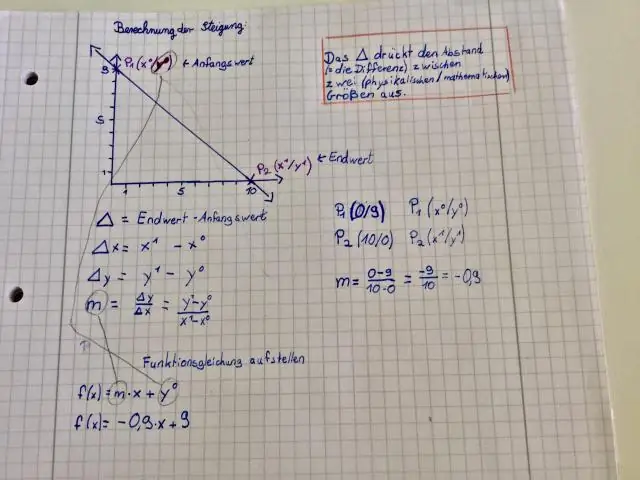 Berechnung der Steigung:
P₁(x⁰/y⁰) ← Anfangswert
9
5
1
1 5 10
P₂(x¹/y¹) ← Endwert
Das Δ drückt den Abstand
(= die Differenz) zwischen
zwei (physikalischen/mathematischen)
Größen aus.
Δ = Endwert - Anfangswert
Δx = x¹ - x⁰
Δy = y¹ - y⁰
m = Δy/Δx = y¹-y⁰/x¹-x⁰
P₁(0/9) P₁(x⁰/y⁰)
P₂(10/0) P₂(x¹/y¹)
m = 0-9/10-0 = -9/10 = -0,9
Funktionsgleichung aufstellen
f(x) = m·x + y⁰
f(x) = -0,9·x + 9